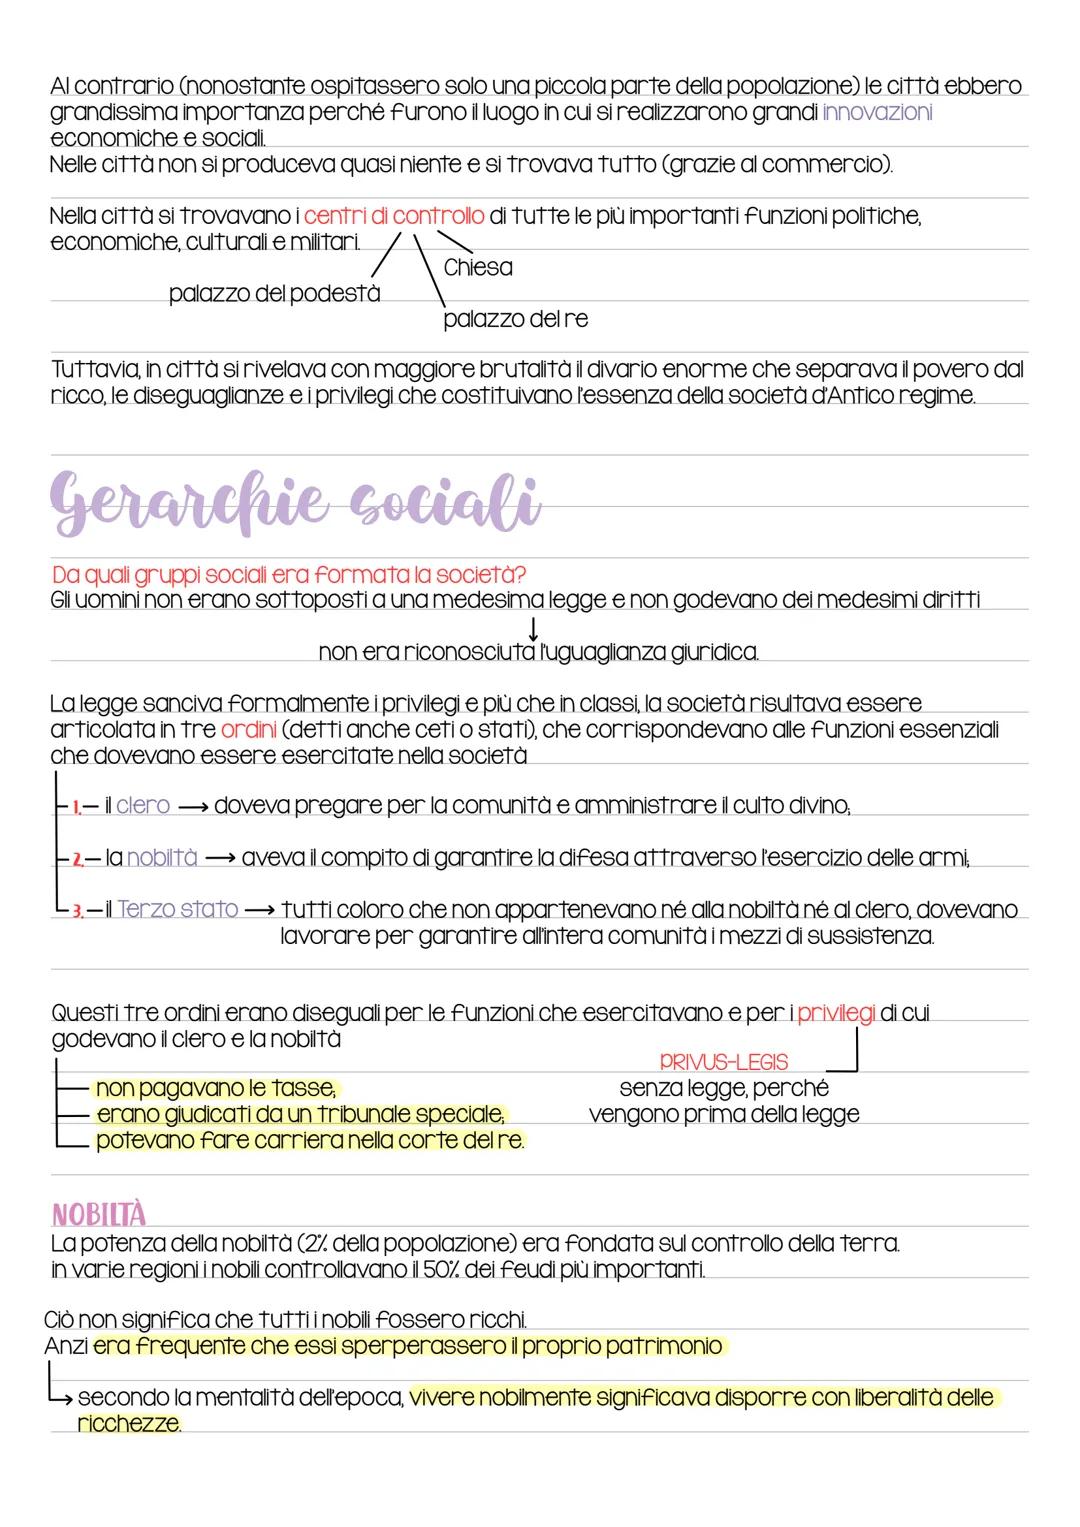 Al contrario (nonostante ospitassero solo una piccola parte della popolazione) le città ebbero
grandissima importanza perché furono il luogo in cui si realizzarono grandi innovazioni
economiche e sociali.
Nelle città non si produceva quasi niente e si trovava tutto (grazie al commercio).
Nella città si trovavano i centri di controllo di tutte le più importanti funzioni politiche,
economiche, culturali e militari.
Chiesa
palazzo del podestà
palazzo del re
Tuttavia, in città si rivelava con maggiore brutalità il divario enorme che separava il povero dal
ricco, le diseguaglianze e i privilegi che costituivano l'essenza della società d'Antico regime.
Gerarchie sociali
Da quali gruppi sociali era formata la società?
Gli uomini non erano sottoposti a una medesima legge e non godevano dei medesimi diritti
non era riconosciuta l'uguaglianza giuridica.
La legge sanciva formalmente i privilegi e più che in classi, la società risultava essere
articolata in tre ordini (detti anche ceti o stati), che corrispondevano alle funzioni essenziali
che dovevano essere esercitate nella società
1. il clero → doveva pregare per la comunità e amministrare il culto divino;
2. la nobiltà → aveva il compito di garantire la difesa attraverso l'esercizio delle armi;
3. il Terzo stato → tutti coloro che non appartenevano né alla nobiltà né al clero, dovevano
lavorare per garantire all'intera comunità i mezzi di sussistenza.
Questi tre ordini erano diseguali per le funzioni che esercitavano e per i privilegi di cui
godevano il clero e la nobiltà
PRIVUS-LEGIS
non pagavano le tasse; senza legge, perché
erano giudicati da un tribunale speciale; vengono prima della legge
potevano fare carriera nella corte del re.
NOBILTÀ
La potenza della nobiltà (2% della popolazione) era fondata sul controllo della terra.
in varie regioni i nobili controllavano il 50% dei feudi più importanti.
Ciò non significa che tutti i nobili fossero ricchi.
Anzi era frequente che essi sperperassero il proprio patrimonio
secondo la mentalità dell'epoca, vivere nobilmente significava disporre con liberalità delle
ricchezze.